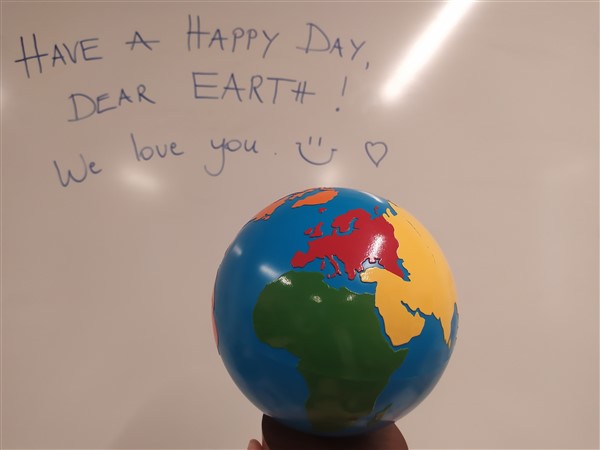 HAVE A HAPPY DAY,
DEAR EARTH!
We love you.